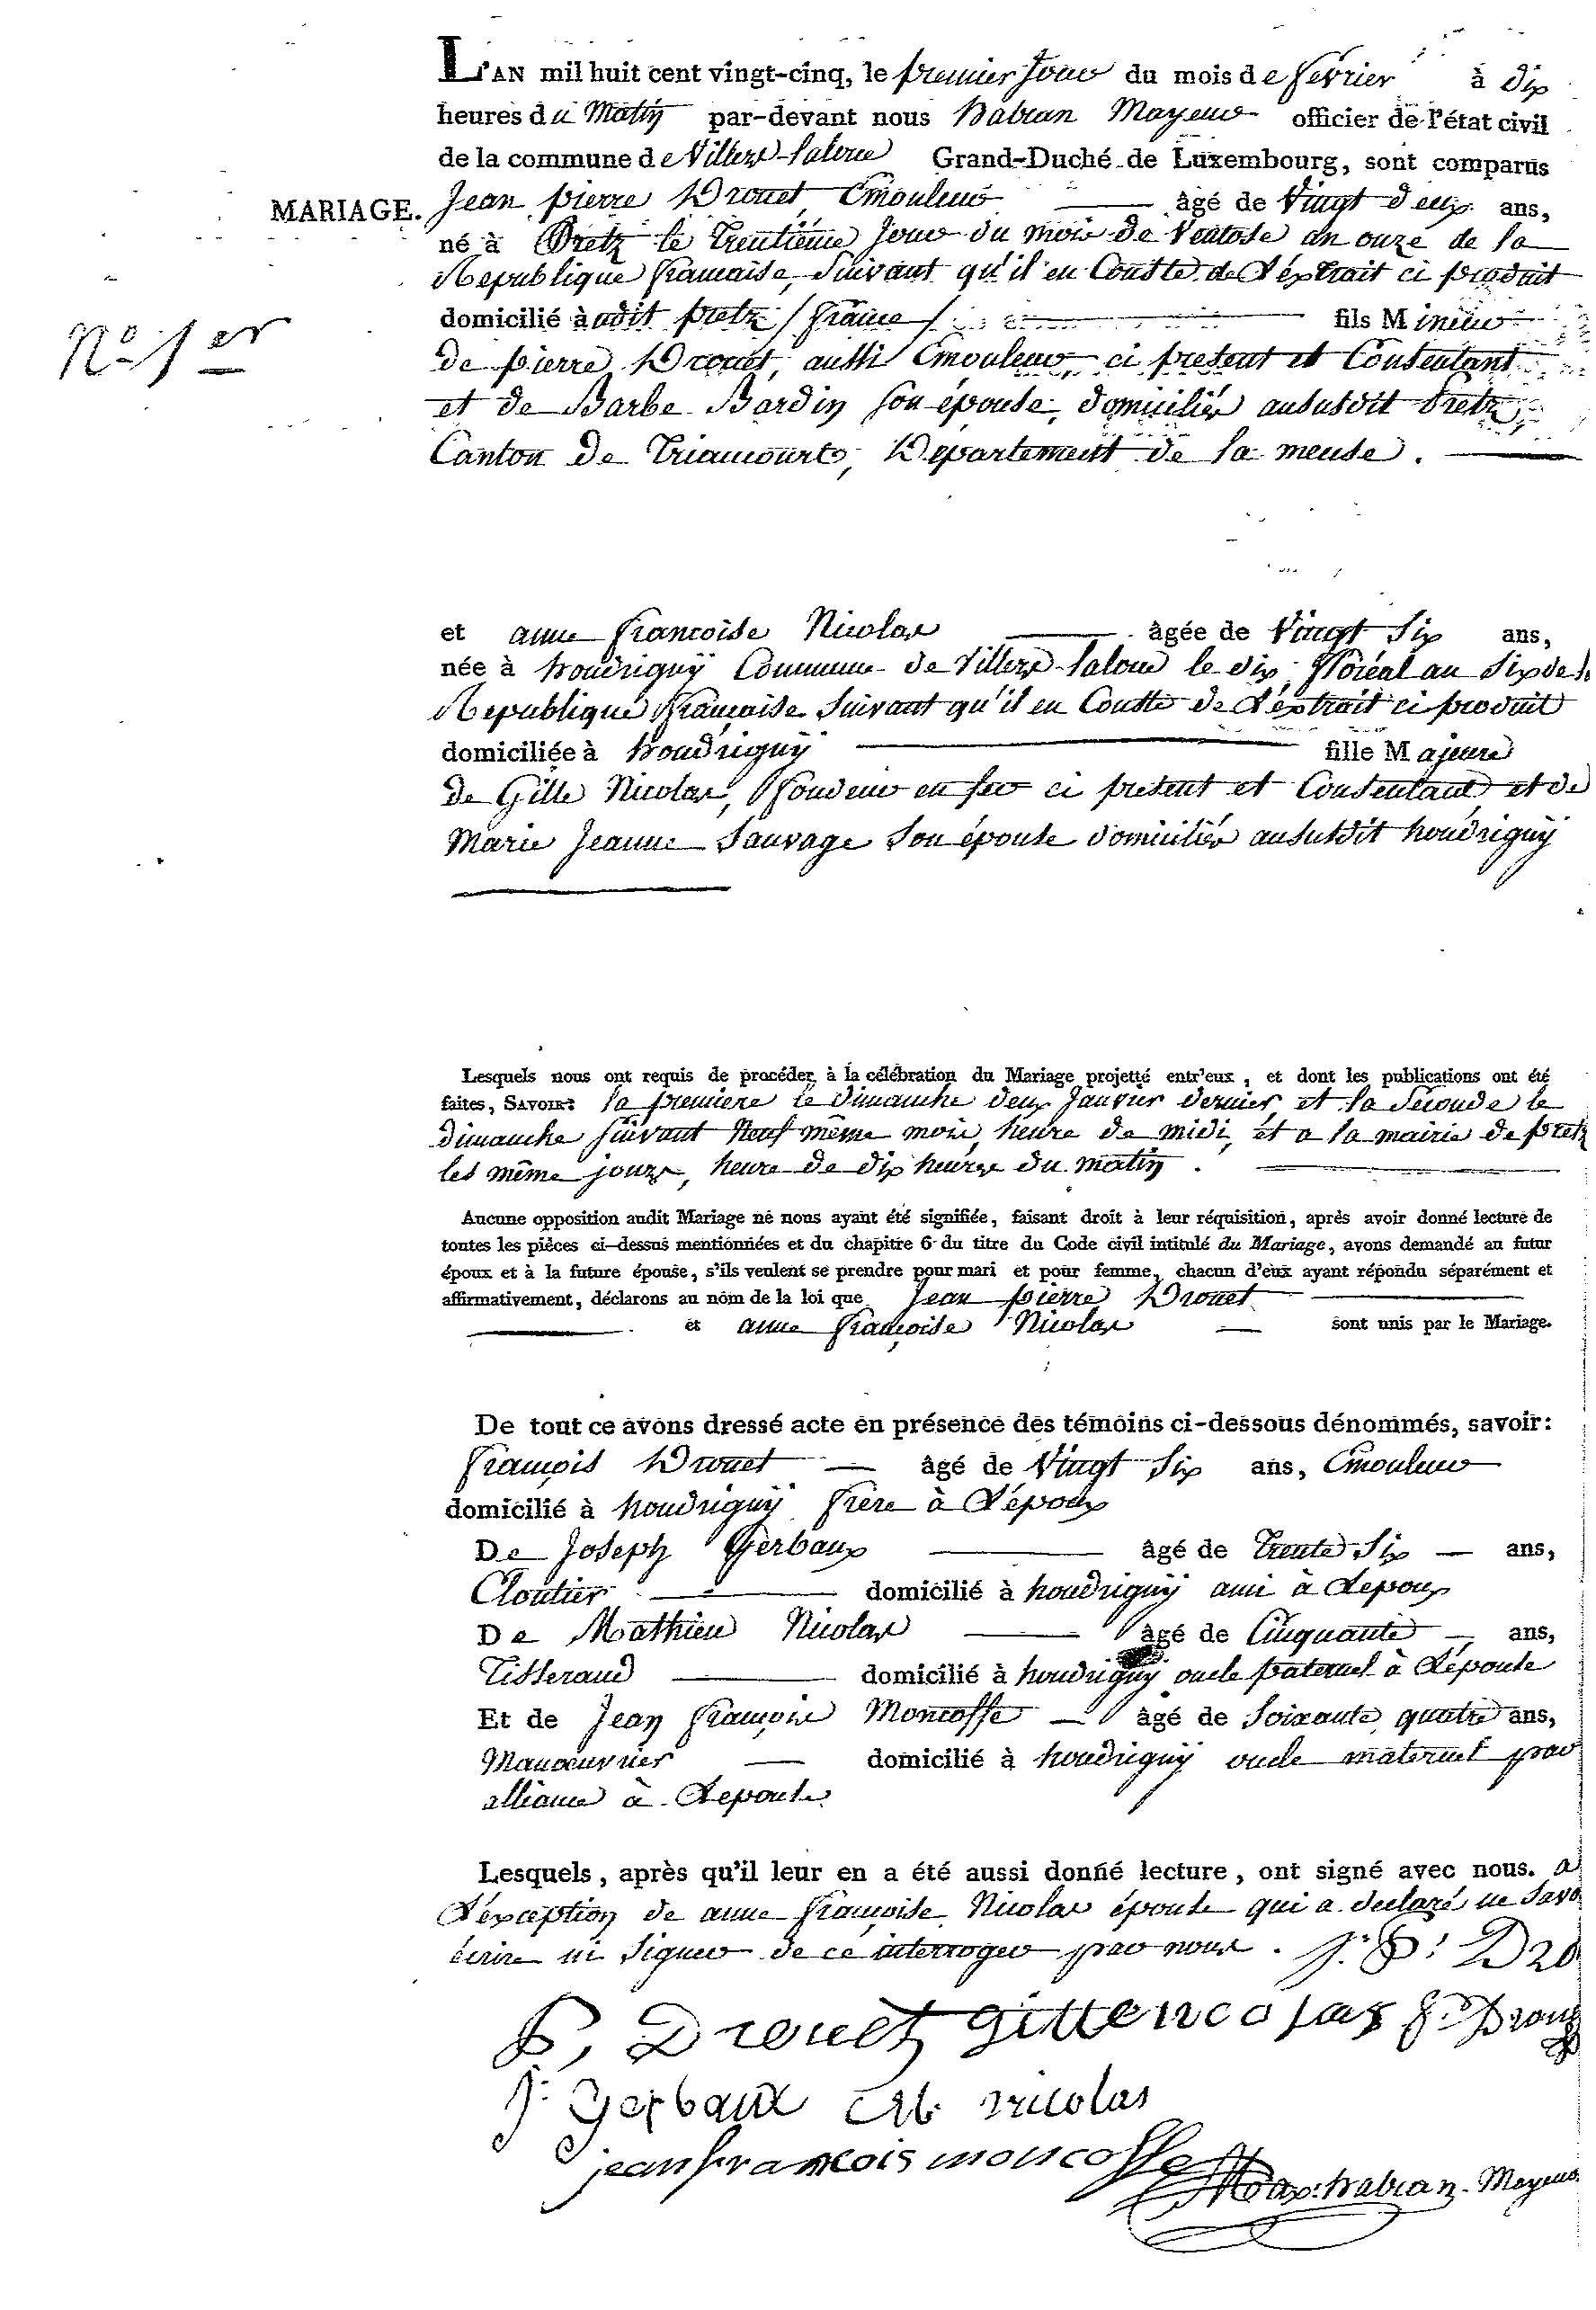 L'AN mil huit cent vingt-cinq, le premier Jour du mois de fevrier à dix
heures du Matin par-devant nous habran Mayeur officier de l'état civil
de la commune de Villers-laloue Grand-Duché de Luxembourg, sont comparus
MARIAGE. Jean pierre Drouet Emouleur âgé de Vingt deux ans,
né à Pretz le Trentième Jour du mois de Ventose an onze de la
Republique française, Suivant qu'il en Conste de L'éxtrait ci produit
N° 1er
domicilié audit pretz / france / fils Mineur
de pierre Drouet, aussi Emouleur, ci present et Consentant
et de Barbe Bardin son épouse, domiciliés ausudit Pretz
Canton de Triaucourt, Département de la meuse.
et anne françoise Nicolas âgée de Vingt Six ans,
née à houdrigny Commune de Villers-laloue le dix floréal an Six de la
Republique française Suivant qu'il en Conste de L'éxtrait ci produit
domiciliée à houdrigny fille Majeure
de Gille Nicolas, fondeur en fer ci present et Consentant et de
Marie Jeanne Sauvage Son épouse domiciliés ausutdit houdrigny
Lesquels nous ont requis de procéder à la célébration du Mariage projetté entr'eux, et dont les publications ont été
faites, SAVOIR: la premiere le dimanche deux Janvier dernier et la Seconde le
dimanche suivant Neuf même mois, heure de midi, et a la mairie de pretz
les même jours, heure de dix heures du matin.
Aucune opposition audit Mariage ne nous ayant été signifiée, faisant droit à leur réquisition, après avoir donné lecture de
toutes les pièces ci-dessus mentionnées et du chapitre 6 du titre du Code civil intitulé du Mariage, avons demandé au futur
époux et à la future épouse, s'ils veulent se prendre pour mari et pour femme, chacun d'eux ayant répondu séparément et
affirmativement, déclarons au nom de la loi que Jean pierre Drouet
et anne françoise Nicolas sont unis par le Mariage.
De tout ce avons dressé acte en présence des témoins ci-dessous dénommés, savoir:
françois Drouet âgé de Vingt Six ans, Emouleur
domicilié à houdrigny frère à L'époux
De Joseph Gerbaux âgé de Trente Six ans,
Cloutier domicilié à houdrigny ami à Lepoux
De Mathieu Nicolas âgé de Cinquante ans,
Tisserand domicilié à houdrigny oncle paternel à L'épouse
Et de Jean françois Moncosse âgé de Soixante quatre ans,
Manoeuvrier domicilié à houdrigny oncle maternel par
alliance à Lepouse
Lesquels, après qu'il leur en a été aussi donné lecture, ont signé avec nous. a
L'éxception de anne françoise Nicolas épouse qui a declaré ne savo
écrire ni Signer de ce interroger par nous. J. P. Dro
P, Drouet gille ncolas f. Droue
J. gerbaux M. nicolas
jean francois moncosse
Max. habran Mayeur